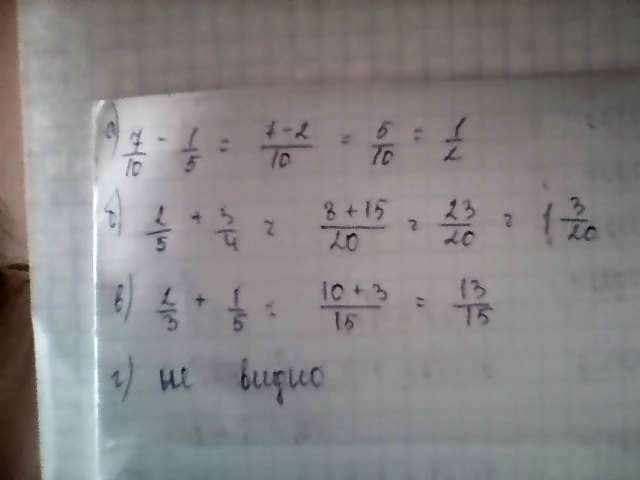 а) 7/10 - 1/5 = 7-2/10 = 5/10 = 1/2
б) 2/5 + 3/4 = 8+15/20 = 23/20 = 1 3/20
в) 2/3 + 1/5 = 10+3/15 = 13/15
г) не видно